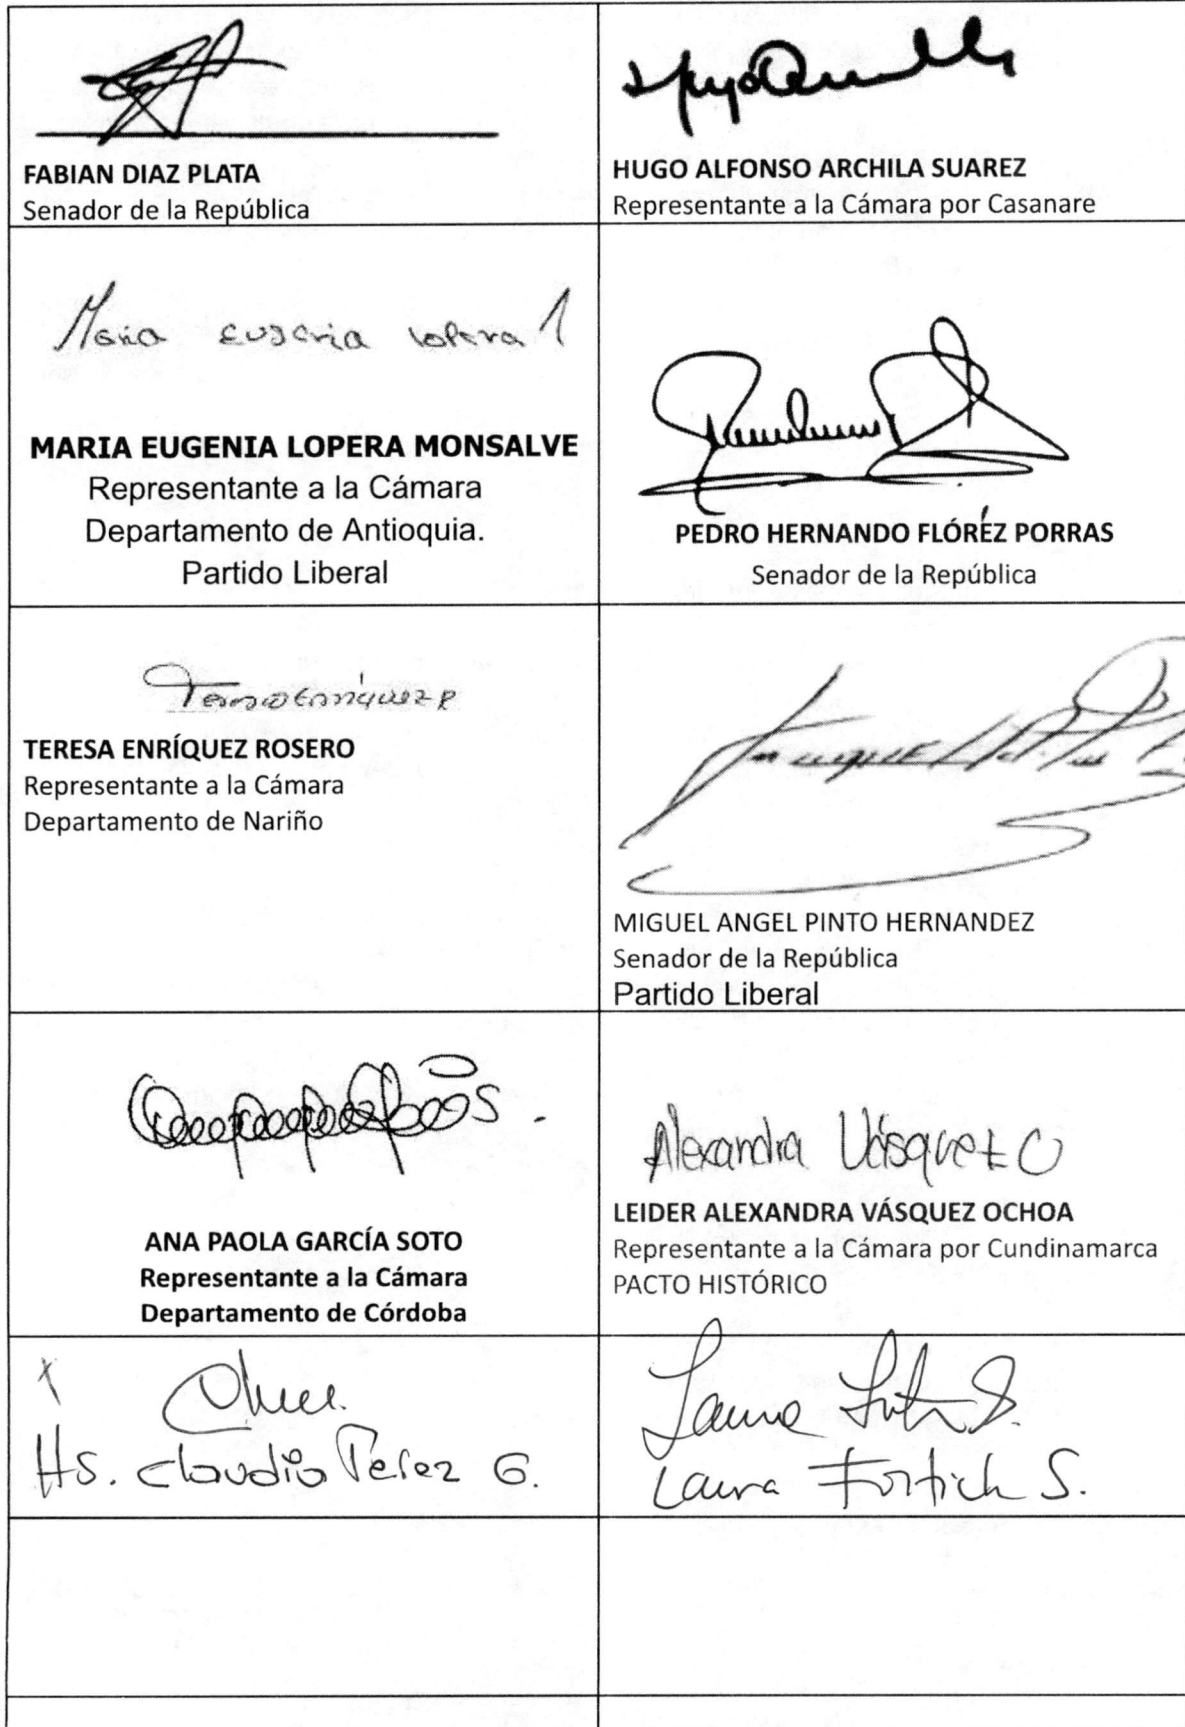 FABIAN DIAZ PLATA
Senador de la República
HUGO ALFONSO ARCHILA SUAREZ
Representante a la Cámara por Casanare
Maria Eugenia Lopera
MARIA EUGENIA LOPERA MONSALVE
Representante a la Cámara
Departamento de Antioquia.
Partido Liberal
PEDRO HERNANDO FLÓREZ PORRAS
Senador de la República
Teresa Enríquez R
TERESA ENRÍQUEZ ROSERO
Representante a la Cámara
Departamento de Nariño
MIGUEL ANGEL PINTO HERNANDEZ
Senador de la República
Partido Liberal
ANA PAOLA GARCÍA SOTO
Representante a la Cámara
Departamento de Córdoba
Alexandra Vásquez O
LEIDER ALEXANDRA VÁSQUEZ OCHOA
Representante a la Cámara por Cundinamarca
PACTO HISTÓRICO
HS. Claudia Perez G.
Laura Fortich S.
Laura Fortich S.